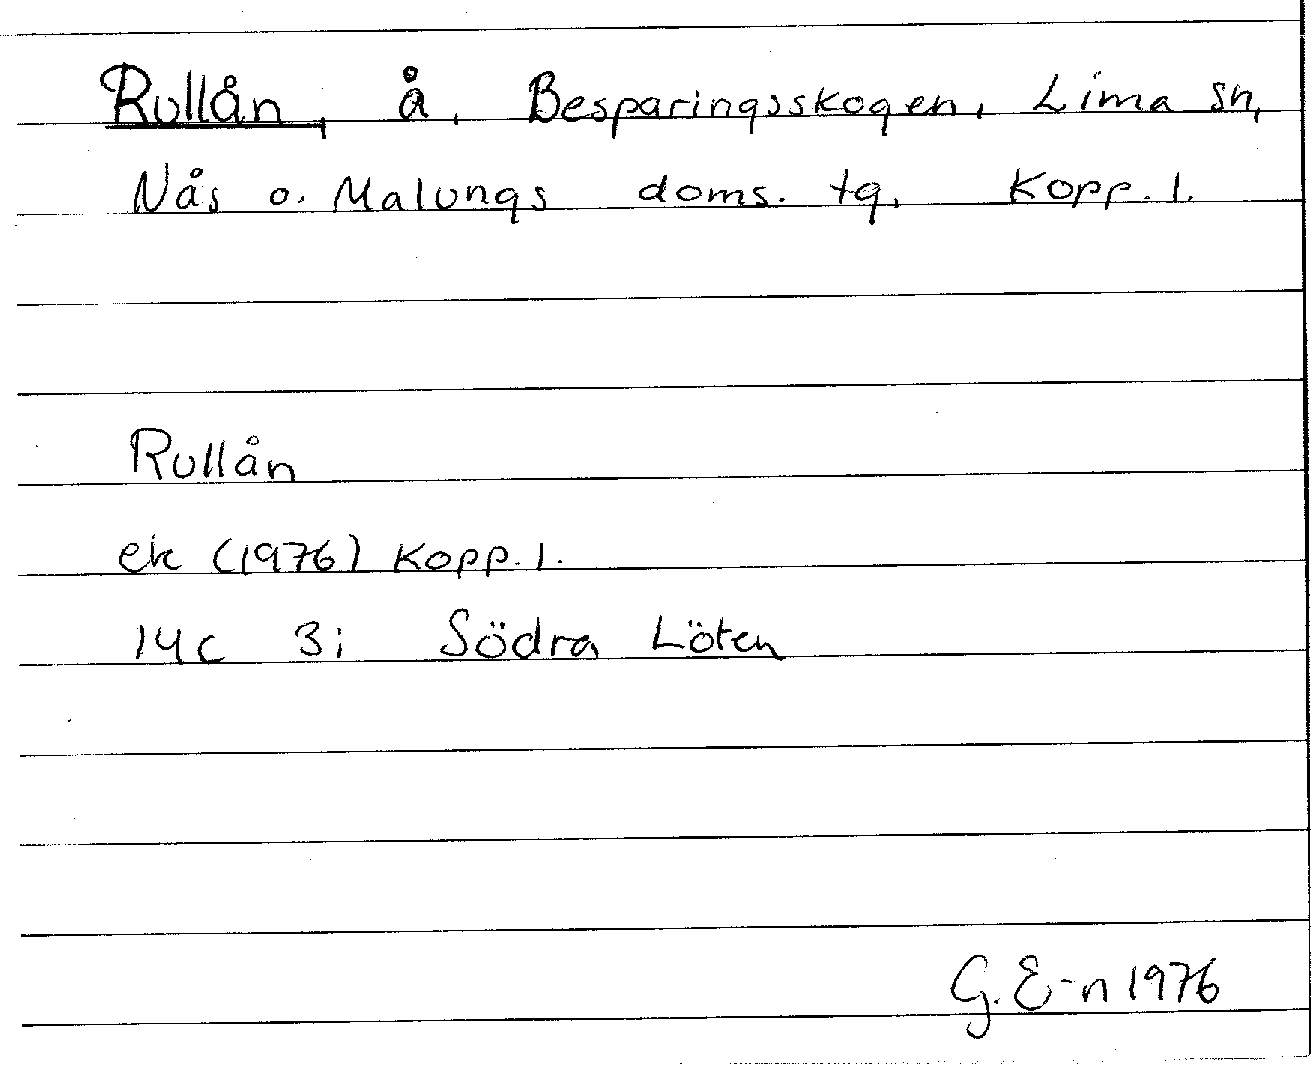 Rullån, å, Besparingsskogen, Lima sn,
Nås o. Malungs doms. tg. Kopp. l.
Rullån
ek (1976) Kopp. l.
14c 3i Södra Löten
G. E-n 1976